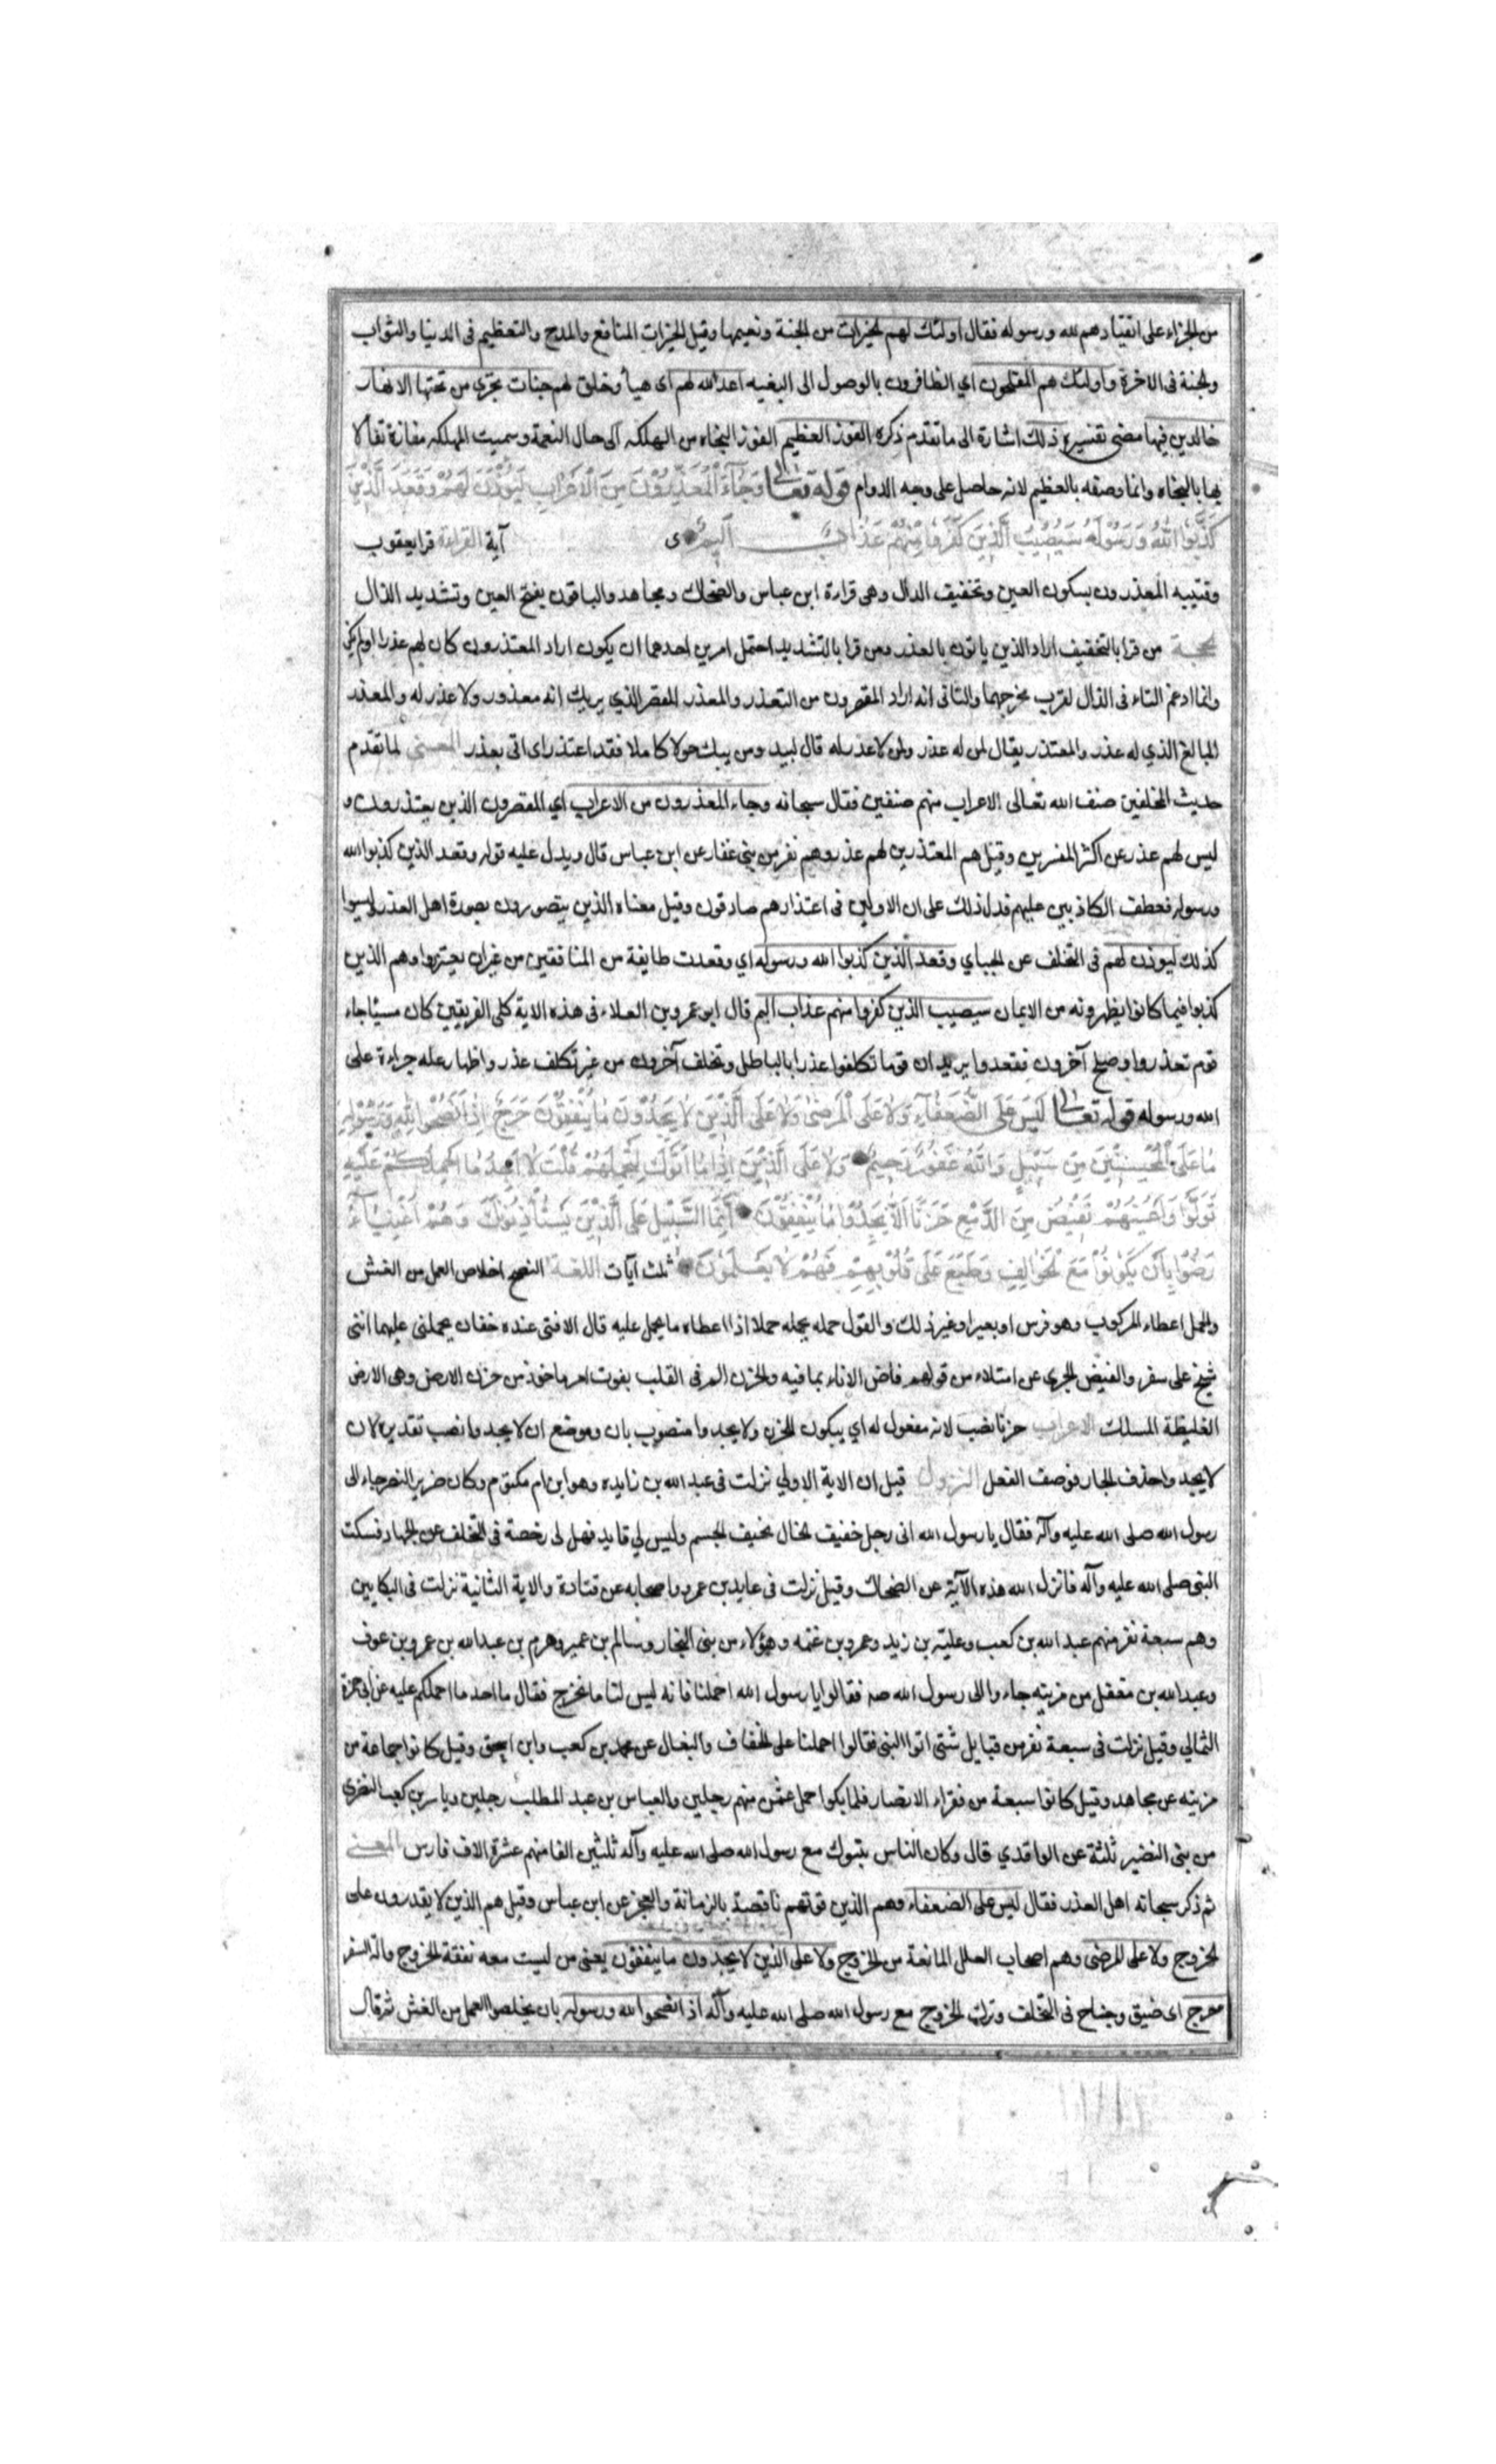 من الجزاء على انقيادهم لله ورسوله فقال اولئك لهم الخيرات من الجنة ونعيمها وقيل الخيرات المنافع والمدح والتعظيم فى الدنيا والثواب
والجنة فى الاخرة واولئك هم المفلحون اي الظافرون بالوصول الى البغيه اعد الله لهم اى هيأ وخلق لهم جنات تجرى من تحتها الانهار
خالدين فيها مضى تفسيره ذلك اشارة الى ما تقدم ذكره الفوز العظيم الفوز النجاه من الهلكه الى حال النعمة وسميت المهلكه مفازة تفألا
بها بالنجاه وانما وصفه بالعظيم لانه حاصل على وجه الدوام قوله تعالى وَجَاءَ الْمُعَذِّرُونَ مِنَ الْاَعْرَابِ لِيُؤْذَنَ لَهُمْ وَقَعَدَ الَّذِينَ
كَذَبُوا اللهَ وَرَسُولَهُ سَيُصِيبُ الَّذِينَ كَفَرُوا مِنْهُمْ عَذَابٌ اَلِيمٌ آية القراءة قرا يعقوب
وقتيبه المعذرون بسكون العين وتخفيف الذال وهى قراءة ابن عباس والضحاك ومجاهد والباقون بفتح العين وتشديد الذال
الحجة من قرا بالتخفيف اراد الذين ياتون بالعذر ومن قرا بالتشديد احتمل امرين احدهما ان يكون اراد المعتذرون كان لهم عذر اولم يكن
وانما ادغم التاء فى الذال لقرب مخرجهما والثانى انه اراد المقصرون من التعذر والمعذر المقصر الذي يريك انه معذور ولا عذر له والمعذر
المبالغ الذي له عذر والمعتذر يقال لمن له عذر ولمن لا عذر له قال لبيد ومن يبك حولا كاملا فقد اعتذر اى اتى بعذر المعنى لما تقدم
حديث المخلفين صنف الله تعالى الاعراب منهم صنفين فقال سبحانه وجاء المعذرون من الاعراب اي المقصرون الذين يعتذرون و
ليس لهم عذر عن اكثر المفسرين وقيل هم المعتذرين لهم عذر وهم نفر من بنى غفار عن ابن عباس قال ويدل عليه قوله وقعد الذين كذبوا الله
ورسوله فعطف الكاذبين عليهم فدل ذلك على ان الاولين فى اعتذارهم صادقون وقيل معناه الذين يتصورون بصورة اهل العذر وليسوا
كذلك ليوذن لهم فى التخلف عن الجهاد وقعد الذين كذبوا الله ورسوله اي وقعدت طايفة من المنافقين من غير ان يعتذروا وهم الذين
كذبوا فيما كانوا يظهرونه من الايمان سيصيب الذين كفروا منهم عذاب اليم قال ابو عمرو بن العلاء فى هذه الاية كلى الفريقين كان مسيئا جاء
قوم تعذروا وجلح آخرون فقعدوا يريد ان قوما تكلفوا عذرا بالباطل وتخلف آخرون من غير تكلف عذر واظهار عله جراءة على
الله ورسوله قوله تعالى لَيْسَ عَلَى الضُّعَفَاءِ وَلَا عَلَى الْمَرْضٰى وَلَا عَلَى الَّذِينَ لَا يَجِدُونَ مَا يُنْفِقُونَ حَرَجٌ اِذَا نَصَحُوا لِلهِ وَرَسُولِهِ
مَا عَلَى الْمُحْسِنِينَ مِنْ سَبِيلٍ وَاللهُ غَفُورٌ رَحِيمٌ وَلَا عَلَى الَّذِينَ اِذَا مَا اَتَوْكَ لِتَحْمِلَهُمْ قُلْتَ لَا اَجِدُ مَا اَحْمِلُكُمْ عَلَيْهِ
تَوَلَّوْا وَاَعْيُنُهُمْ تَفِيضُ مِنَ الدَّمْعِ حَزَنًا اَلَّا يَجِدُوا مَا يُنْفِقُونَ اِنَّمَا السَّبِيلُ عَلَى الَّذِينَ يَسْتَأْذِنُونَكَ وَهُمْ اَغْنِيَاءُ
رَضُوا بِاَنْ يَكُونُوا مَعَ الْخَوَالِفِ وَطَبَعَ عَلَى قُلُوبِهِمْ فَهُمْ لَا يَعْلَمُونَ ثلث آيات اللغة النصح اخلاص العمل من الغش
والحمل اعطاء المركوب وهو فرس او بعير او غير ذلك والقول حمله يحمله حملا اذا اعطاه ما يحمل عليه قال الافتى عنده خفان يحملنى عليهما اننى
شيخ على سفر والفيض الجرى عن امتلاء من قولهم فاض الاناء بما فيه والحزن الم فى القلب بفوت امر ماخوذ من حزن الارض وهى الارض
الغليظة المسلك الاعراب حزنا نصب لانه مفعول له اي يبكون للحزن ولا يجدوا منصوب بان وموضع ان لا يجدوا نصب تقديره لان
لا يجدوا حذف الجار فوصف الفعل النزول قيل ان الاية الاولي نزلت فى عبد الله بن زايده وهو ابن ام مكتوم وكان ضرير البصر جاء الى
رسول الله صلى الله عليه وآله فقال يا رسول الله انى رجل خفيف الحال نحيف الجسم وليس لي قايد فهل لى رخصة فى التخلف عن الجهاد فسكت
النبى صلى الله عليه وآله فانزل الله هذه الآية عن الضحاك وقيل نزلت فى عايد بن عمرو واصحابه عن قتادة والاية الثانية نزلت فى البكايين
وهم سبعة نفر منهم عبد الله بن كعب وعلية بن زيد وعمرو بن غنمه وهؤلاء من بنى النجار وسالم بن عمير وهرم بن عبد الله بن عمرو بن عوف
وعبد الله بن مغفل من مزينه جاءوا الى رسول الله صه فقالوا يا رسول الله احملنا فانه ليس لنا ما نخرج فقال ما اجد ما احملكم عليه عن ابى حمزة
الثمالي وقيل نزلت فى سبعة نفر من قبايل شتى اتوا النبى فقالوا احملنا على الخفاف والبغال عن محمد بن كعب وابن اسحق وقيل كانوا جماعة من
مزينه عن مجاهد وقيل كانوا سبعة من فقراء الانصار فلما بكوا حمل عثمن منهم رجلين والعباس بن عبد المطلب رجلين وياسر بن كعب النضرى
من بنى النضير ثلثة عن الواقدي قال وكان الناس بتبوك مع رسول الله صلى الله عليه وآله ثلثين الفا منهم عشرة الاف فارس المعنى
ثم ذكر سبحانه اهل العذر فقال ليس على الضعفاء وهم الذين قوتهم ناقصة بالزمانة والعجز عن ابن عباس وقيل هم الذين لا يقدرون على
الخروج ولا على المرضى وهم اصحاب العلل المانعة من الخروج ولا على الذين لا يجدون ما ينفقون يعنى من ليست معه نفقة الخروج والة السفر
حرج اى ضيق وجناح فى التخلف وترك الخروج مع رسول الله صلى الله عليه وآله اذا نصحوا لله ورسوله بان يخلصوا العمل من الغش ثم قال